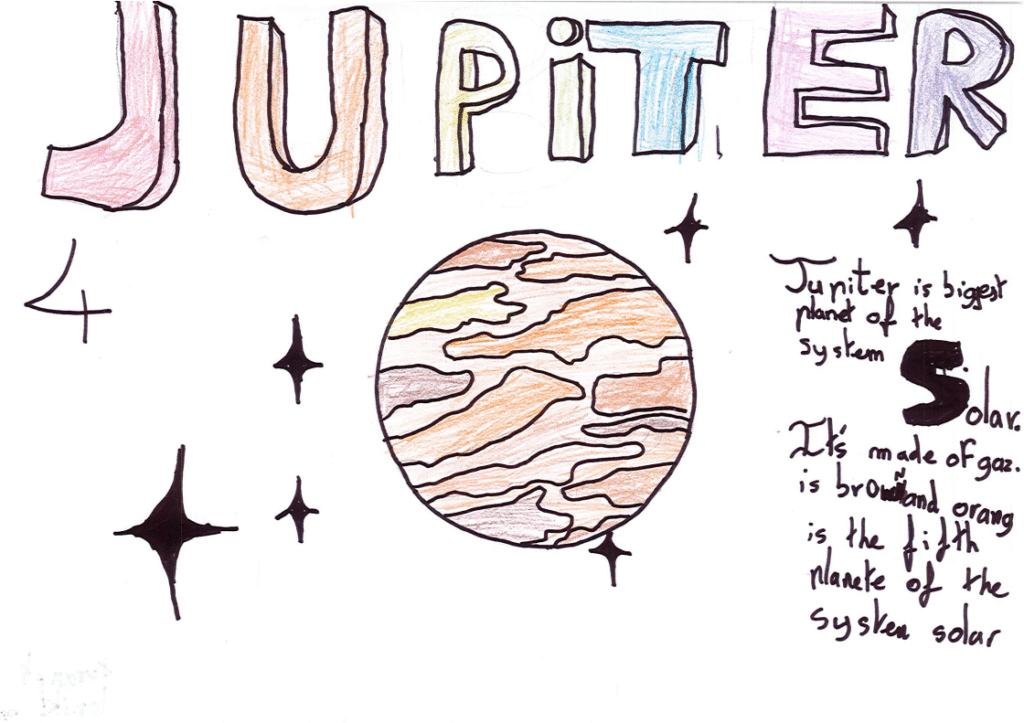 JUPiTER
4
Jupiter is biggest
planet of the
system
Solar.
It's made of gaz.
is brown and orang
is the fifth
planete of the
system solar